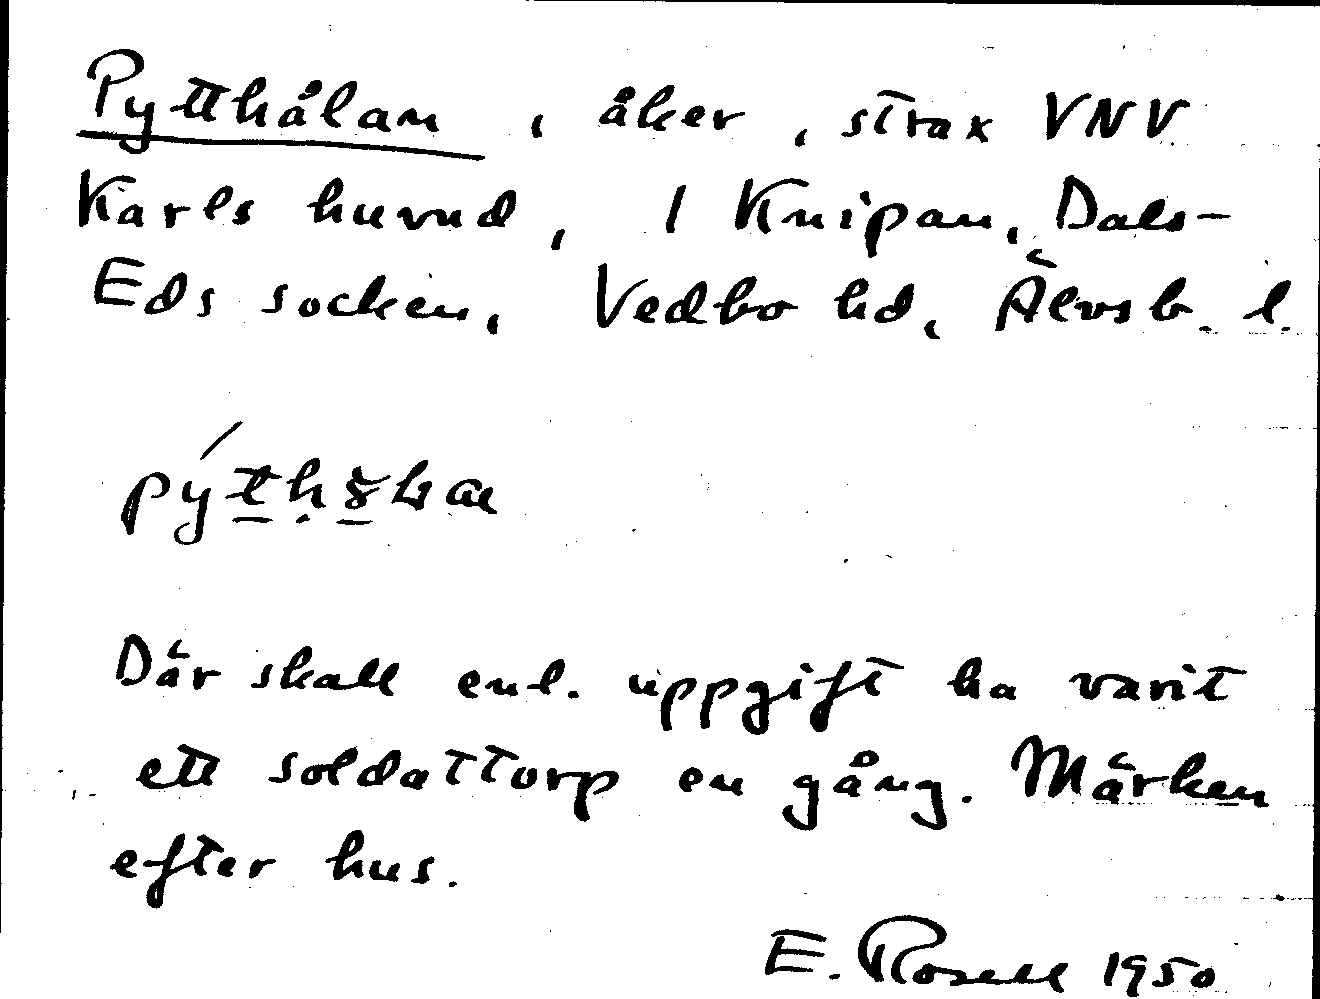 Pytthålan, åker, strax VNV
Karls huvud, 1 Knipan, Dals-
Eds socken, Vedbo hd, Älvsb. l.
Där skall enl. uppgift ha varit
ett soldattorp en gång. Märken
efter hus.
E. Rosell 1950